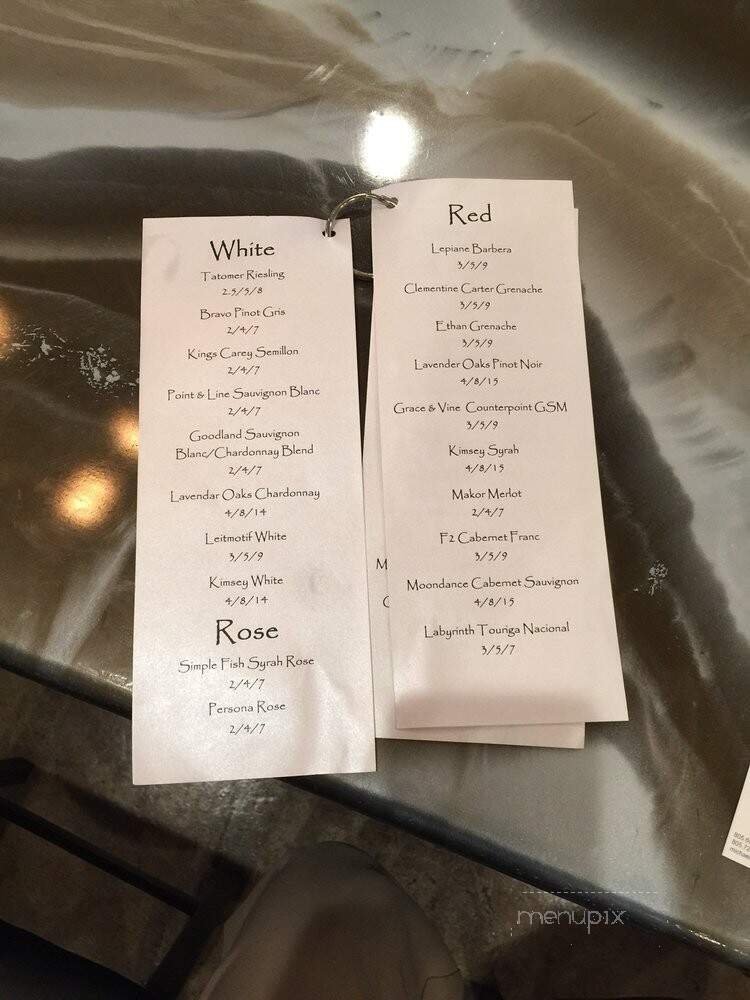 White
Tatomer Riesling
2.5/5/8
Bravo Pinot Gris
2/4/7
Kings Carey Semillon
2/4/7
Point & Line Sauvignon Blanc
2/4/7
Goodland Sauvignon
Blanc/Chardonnay Blend
2/4/7
Lavendar Oaks Chardonnay
4/8/14
Leitmotif White
3/5/9
Kimsey White
4/8/14
Rose
Simple Fish Syrah Rose
2/4/7
Persona Rose
2/4/7
Red
Lepiane Barbera
3/5/9
Clementine Carter Grenache
3/5/9
Ethan Grenache
3/5/9
Lavender Oaks Pinot Noir
4/8/15
Grace & Vine Counterpoint GSM
3/5/9
Kimsey Syrah
4/8/15
Makor Merlot
2/4/7
F2 Cabernet Franc
3/5/9
Moondance Cabernet Sauvignon
4/8/15
Labyrinth Touriga Nacional
3/5/7
M
menupix